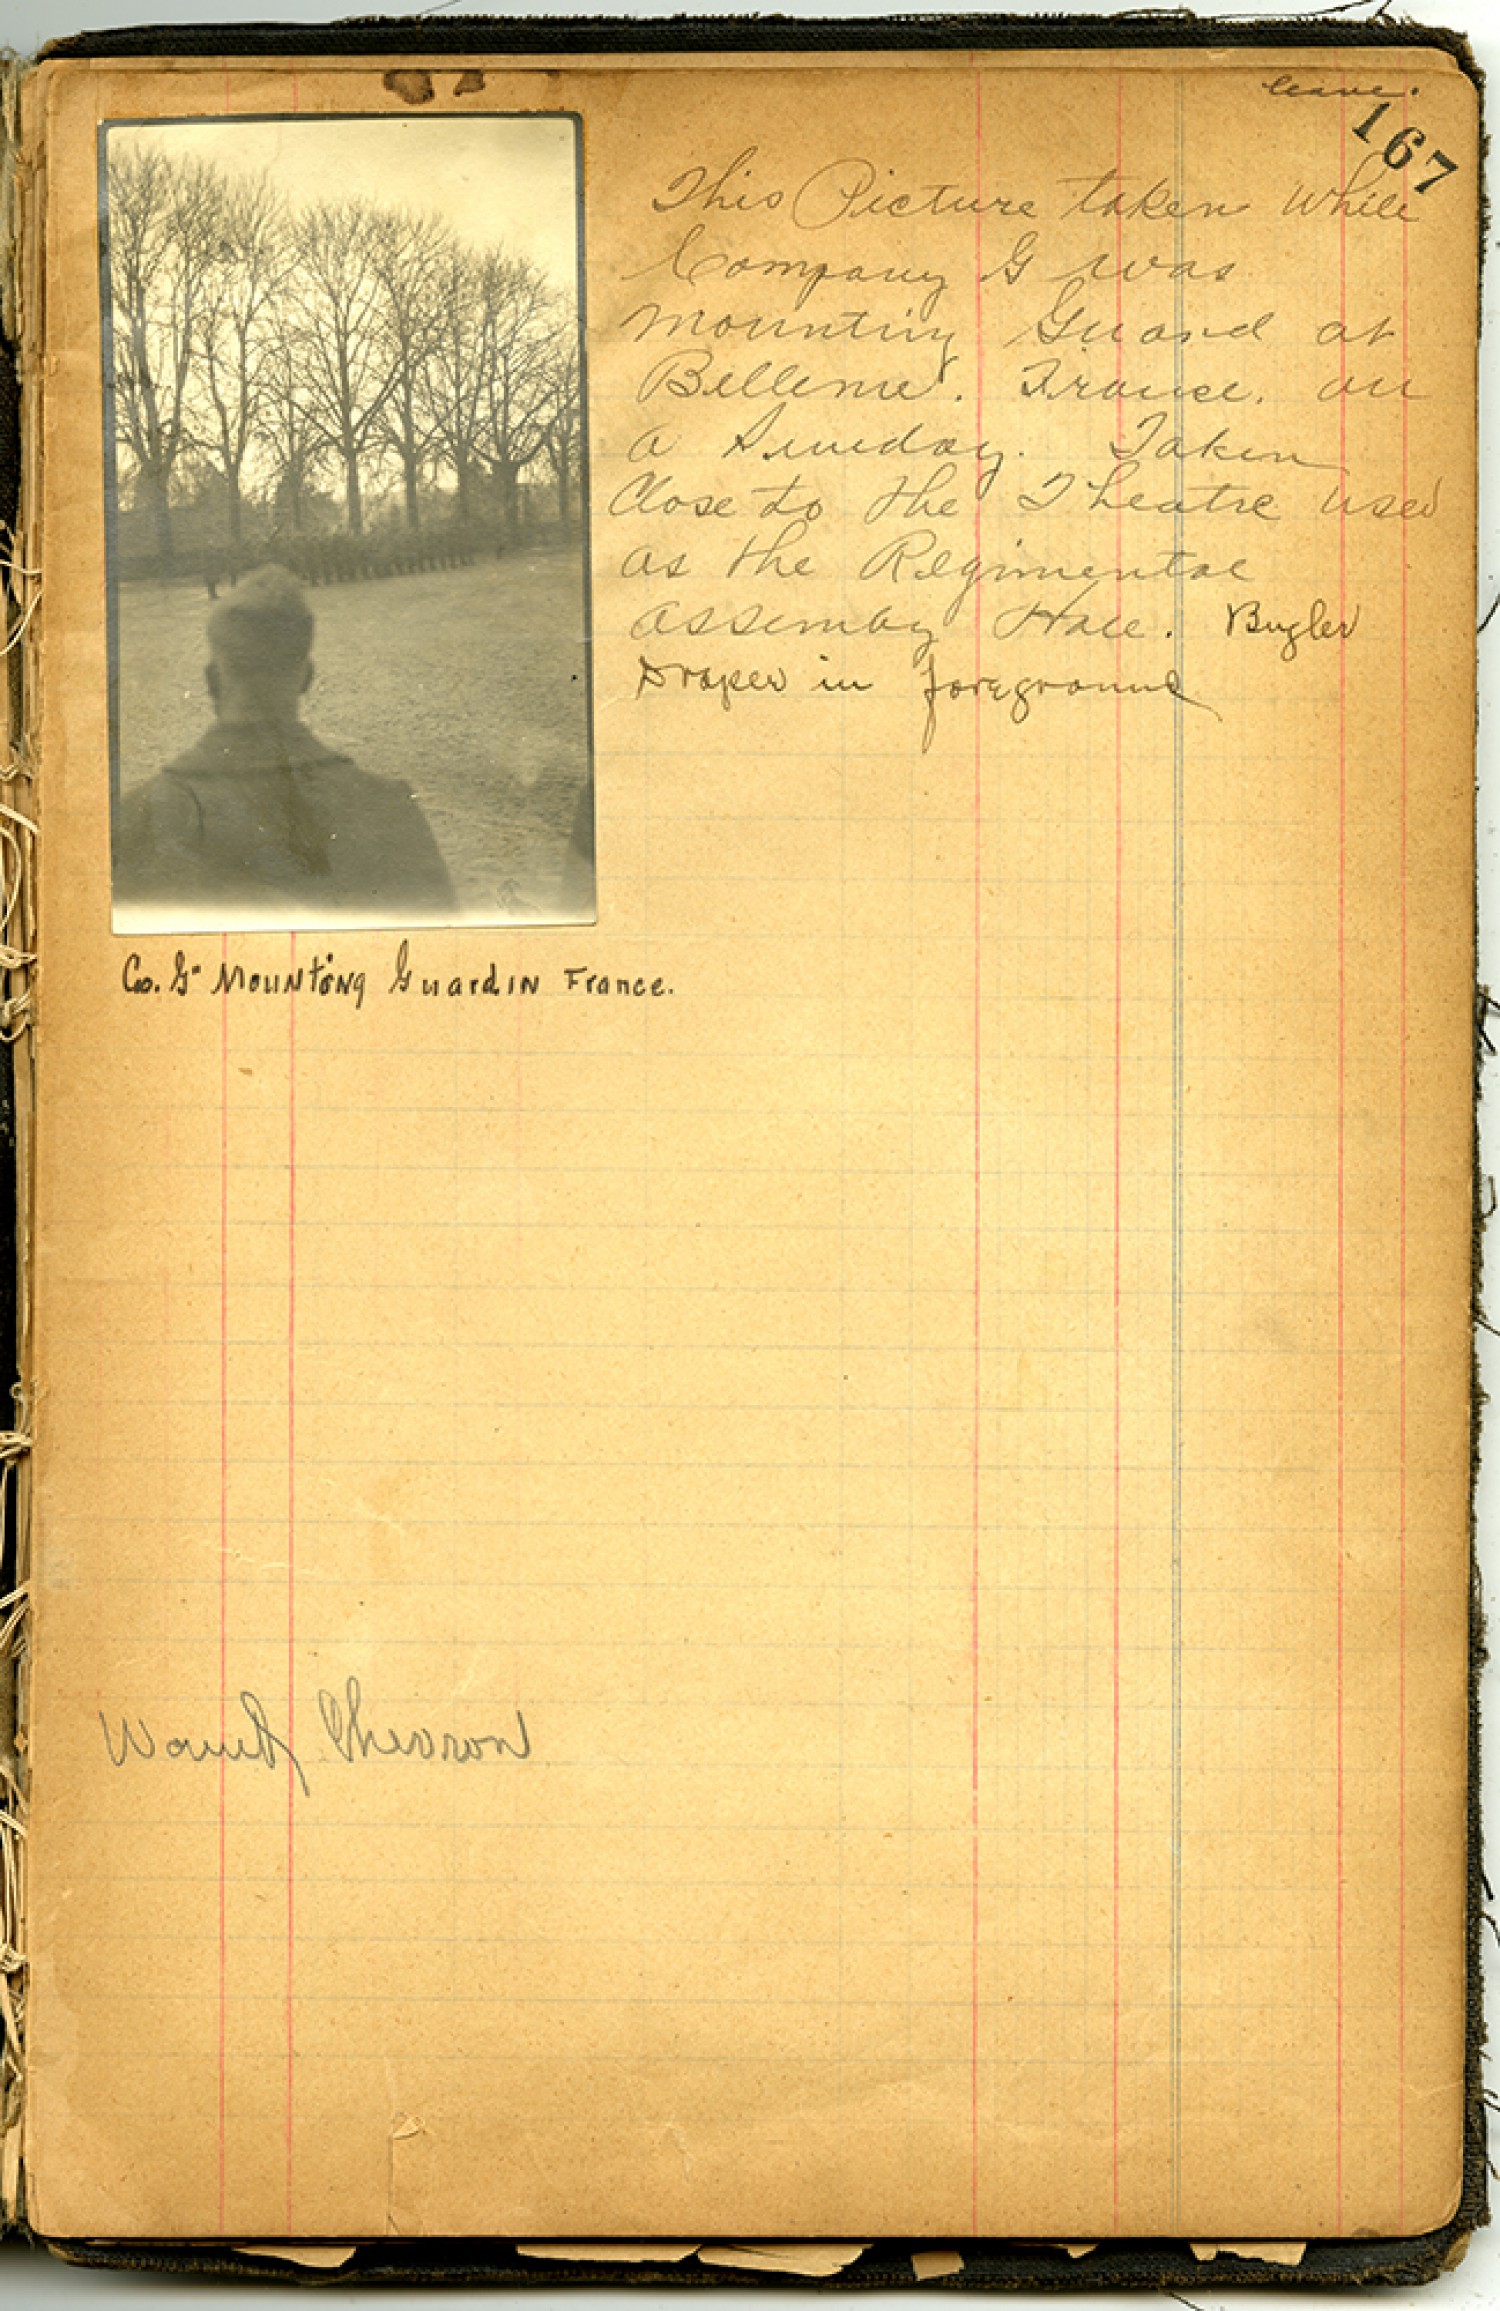 leave.
167
This Picture taken while
Company G was
mounting Guard at
Belleme. France. on
a Sunday. Taken
Close to the Theatre used
as the Regimental
Assembly Hall. Bugler
Draper in foreground
Co. G- Mounting Guard in France.
Wound Chevron